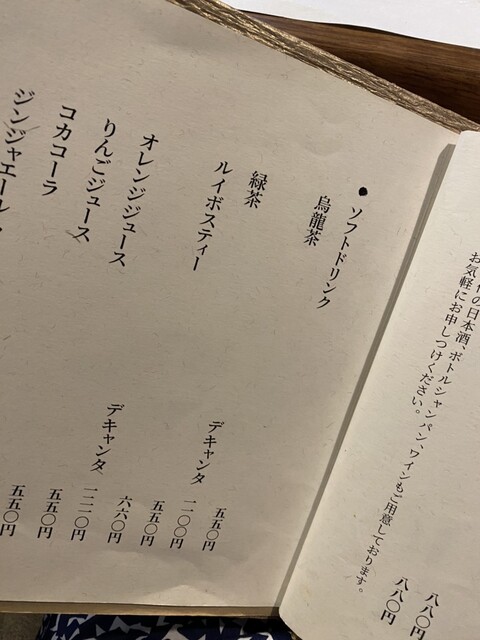 の日本酒、ボトルシャンパン、ワインもご用意しております。
お気軽にお申しつけください。
八八〇円
八八〇円
●ソフトドリンク
烏龍茶 五五〇円
デキャンタ 一一〇〇円
緑茶 五五〇円
ルイボスティー 六六〇円
デキャンタ 一三二〇円
オレンジジュース 五五〇円
りんごジュース 五五〇円
コカコーラ
ジンジャエール